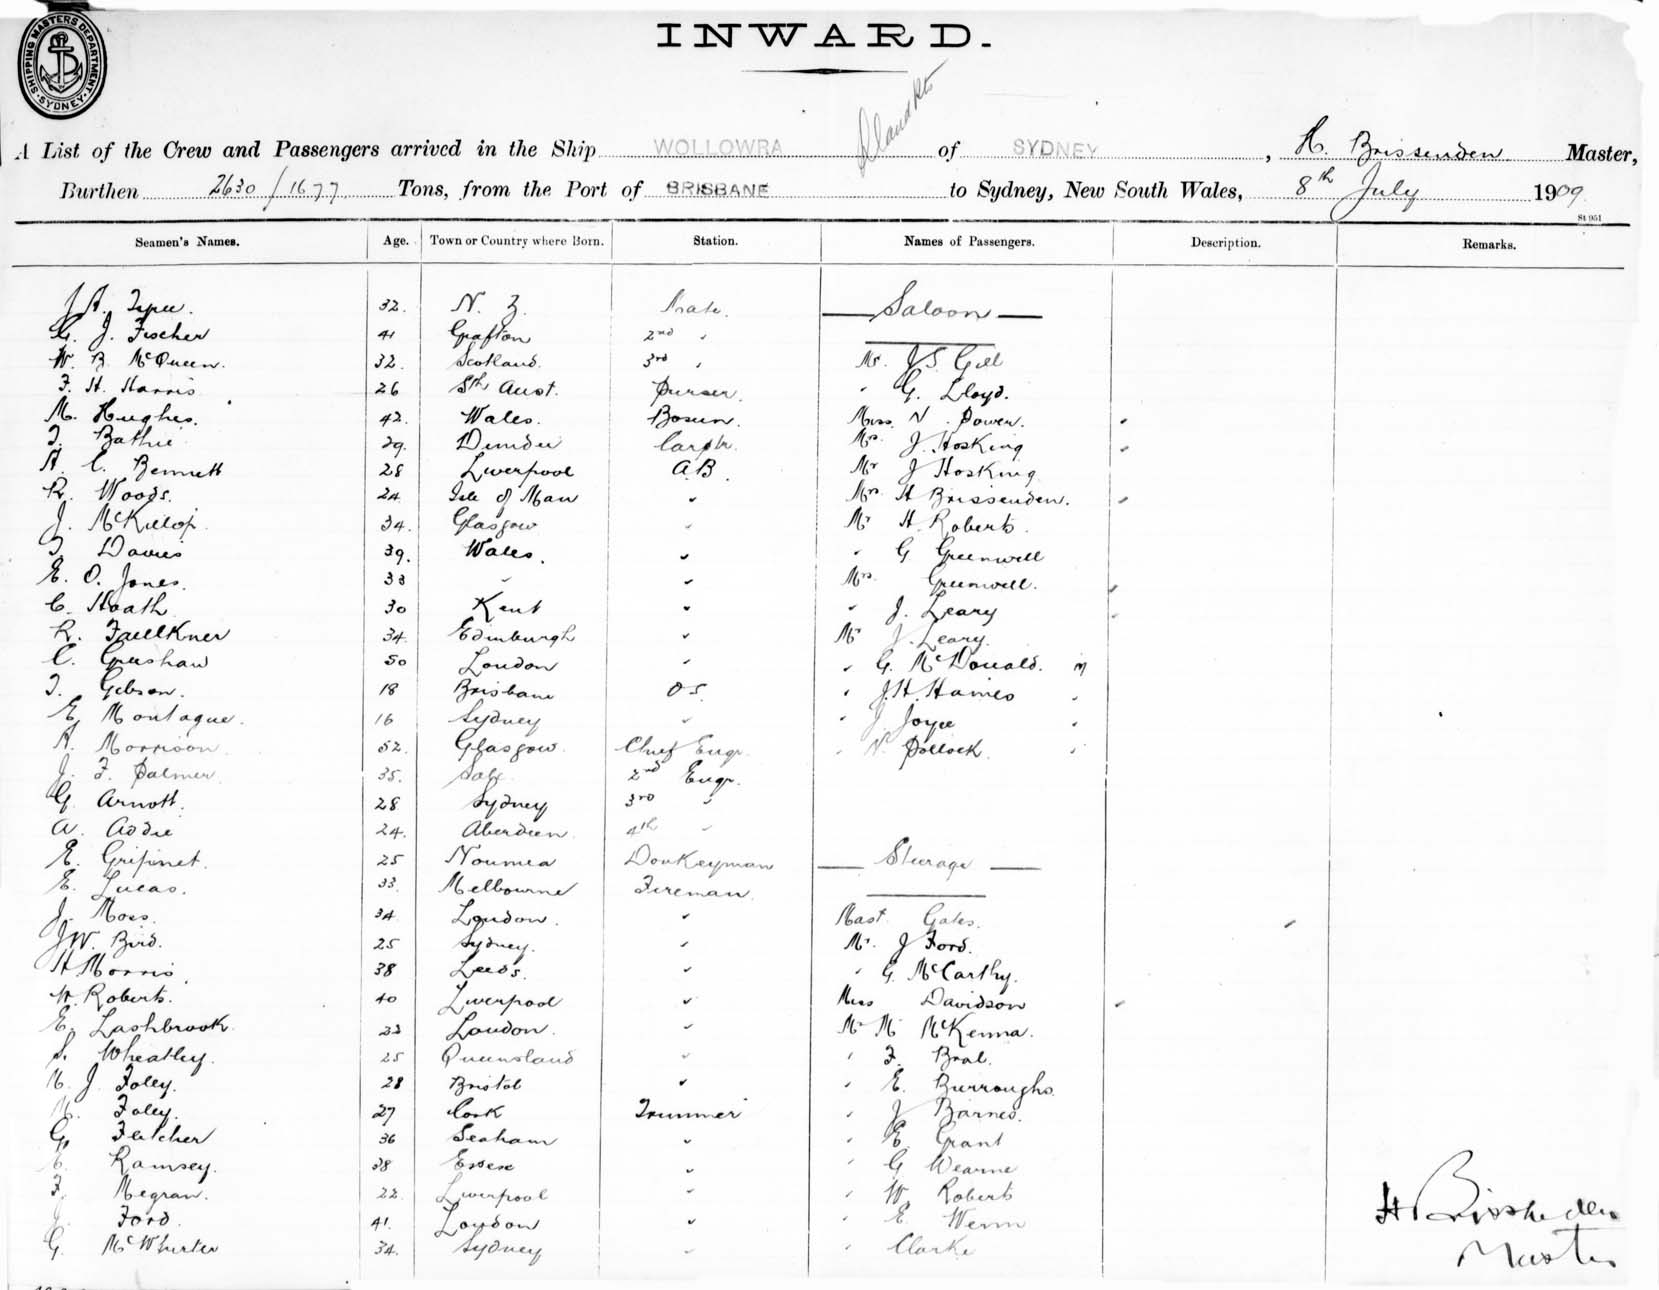 SHIPPING MASTERS DEPARTMENT
SYDNEY
INWARD.
A List of the Crew and Passengers arrived in the Ship WOLLOWRA of SYDNEY, H. Brissenden Master,
Burthen 2630/1677 Tons, from the Port of BRISBANE to Sydney, New South Wales, 8th July 1909
St 951
Seamen's Names. Age. Town or Country where Born. Station. Names of Passengers. Description. Remarks.
32. N. Z. Mate. Saloon
G. J. Fischer 41 Grafton 2nd "
W. B. McQueen. 32. Scotland. 3rd " Mr. J.S. Gill
F. H. Harris 26 Sth Aust. Purser. " G. Lloyd.
M. Hughes. 42. Wales. Bosun. Miss. N. Power. "
T. Bathie 29. Dundee Carptr. Mrs. J. Hosking "
A. C. Bennett 28 Liverpool A.B. Mr J Hosking
R. Woods. 24. Isle of Man " Mrs H Brissenden. "
J. McKillop. 34. Glasgow " Mr H. Roberts.
T. Davies 39. Wales. " " G Greenwell
E. O. Jones. 33 " " Mrs. Greenwell. "
C. Hoath 30 Kent " " J. Leary "
R. Faulkner 34. Edinburgh " Mr J. Leary.
C. Grushaw 50 London " " G. McDonald. m
T. Gibson. 18 Brisbane OS. " J.H. Haines "
E. Montague. 16 Sydney " " J. Joyce "
A. Morrison 52. Glasgow. Chief Engr. " V. Pollock "
J. F. Palmer 35. Sale 2nd Engr.
G. Arnott. 28 Sydney 3rd "
A. Addie 24. Aberdeen 4th "
E. Gripinet. 25 Noumea Donkeyman Steerage
E. Lucas. 33. Melbourne Fireman.
J. Moss. 34 London. " Mast Gates. "
J W. Bird. 25 Sydney. " Mr. J Ford.
H Morris 38 Leeds. " " G. McCarthy.
W. Roberts. 40 Liverpool " Miss Davidson "
E. Lashbrook 33 London. " Mr M McKenna.
S. Wheatley. 25 Queensland " " F. Bral.
M. J. Foley. 28 Bristol " " E. Burroughs.
M. Foley. 27 Cork Trimmer " J Barnes.
G. Fletcher 36 Seaham " " E. Grant
C. Ramsey. 38 Essex " " G Wearne
F. Megran. 22. Liverpool " " W. Roberts
J. Ford. 41. London " " E. Wenn
G. McWhirter 34. Sydney " " Clarke
H Brissenden
Master